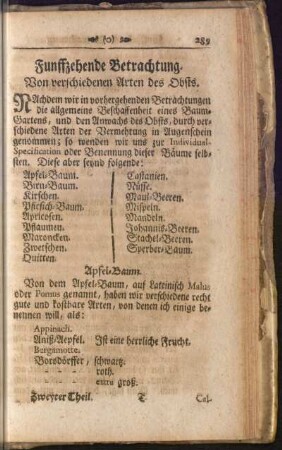 (0) 289
Funffzehende Betrachtung.
Von verschiedenen Arten des Obsts.
NAchdem wir in vorhergehenden Betrachtungen
die allgemeine Beschaffenheit eines Baum-
Gartens, und den Anwachs des Obsts, durch ver-
schiedene Arten der Vermehrung in Augenschein
genommen; so wenden wir uns zur Individual-
Specification oder Benennung dieser Bäume selb-
sten. Diese aber seynd folgende:
Apfel-Baum. Castanien.
Birn-Baum. Nüsse.
Kirschen. Maul-Beeren.
Pfirsich-Baum. Mispeln.
Apricosen. Mandeln.
Pflaumen. Johannis-Beeren.
Maroncken. Stachel-Beeren.
Zwetschen. Sperber-Baum.
Quitten.
Apfel-Baum.
Von dem Apfel-Baum, auf Lateinisch Malus
oder Pomus genannt, haben wir verschiedene recht
gute und kostbare Arten, von denen ich einige be-
nennen will, als:
Appinach.
Aniß-Aepfel. Ist eine herrliche Frucht.
Burgamotte.
Borsdörffer, schwartz.
- - - roth.
- - - extra groß.
Zweyter Theil. T Cal-